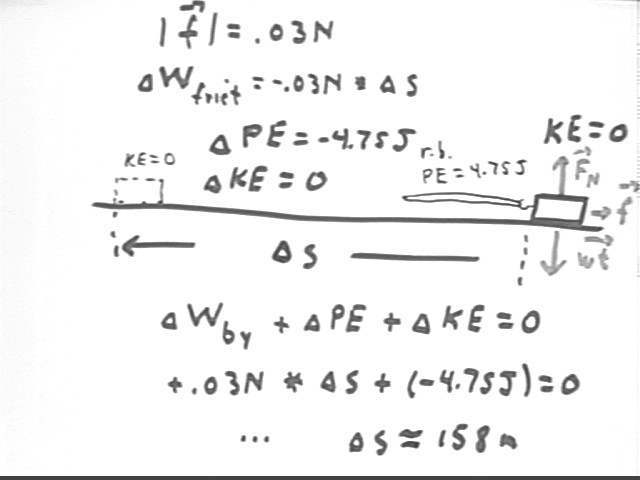 |f⃗| = .03N
ΔW_frict = -.03N * ΔS
ΔPE = -4.75J
KE=0
KE=0
ΔKE = 0
r.b.
PE = 4.75J
F⃗_N
f⃗
w⃗t
ΔS
ΔW_by + ΔPE + ΔKE = 0
+.03N * ΔS + (-4.75J) = 0
... ΔS ≈ 158 m